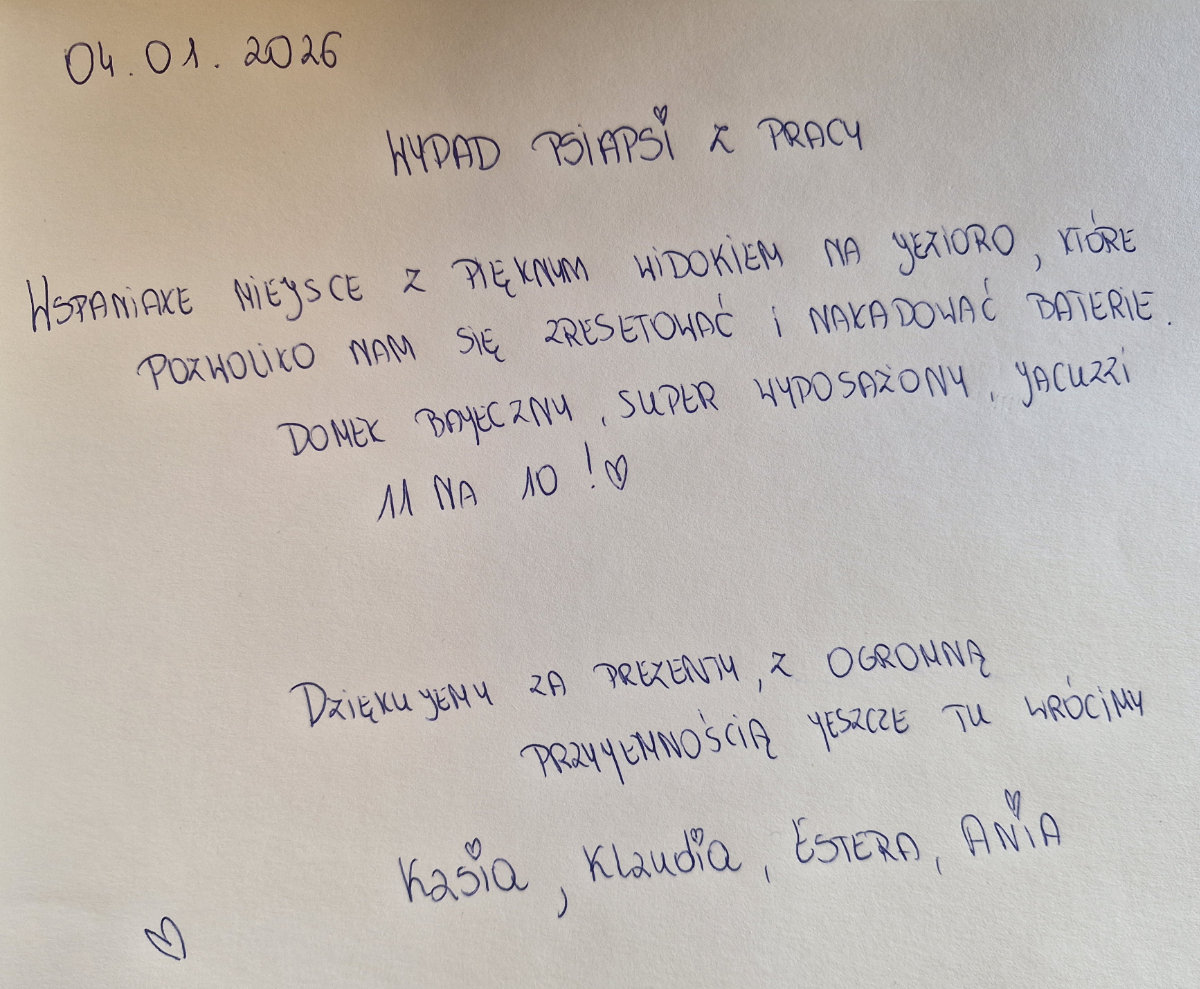 04.01.2026
WYPAD PSIAPSI Z PRACY
WSPANIAŁE MIEJSCE Z PIĘKNYM WIDOKIEM NA JEZIORO, KTÓRE
POZWOLIŁO NAM SIĘ ZRESETOWAĆ I NAŁADOWAĆ BATERIE.
DOMEK BAJECZNY, SUPER WYPOSAŻONY, JACUZZI
11 NA 10!♡
DZIĘKUJEMY ZA PREZENTY, Z OGROMNĄ
PRZYJEMNOŚCIĄ JESZCZE TU WRÓCIMY
Kasia, Klaudia, ESTERA, ANIA
♡